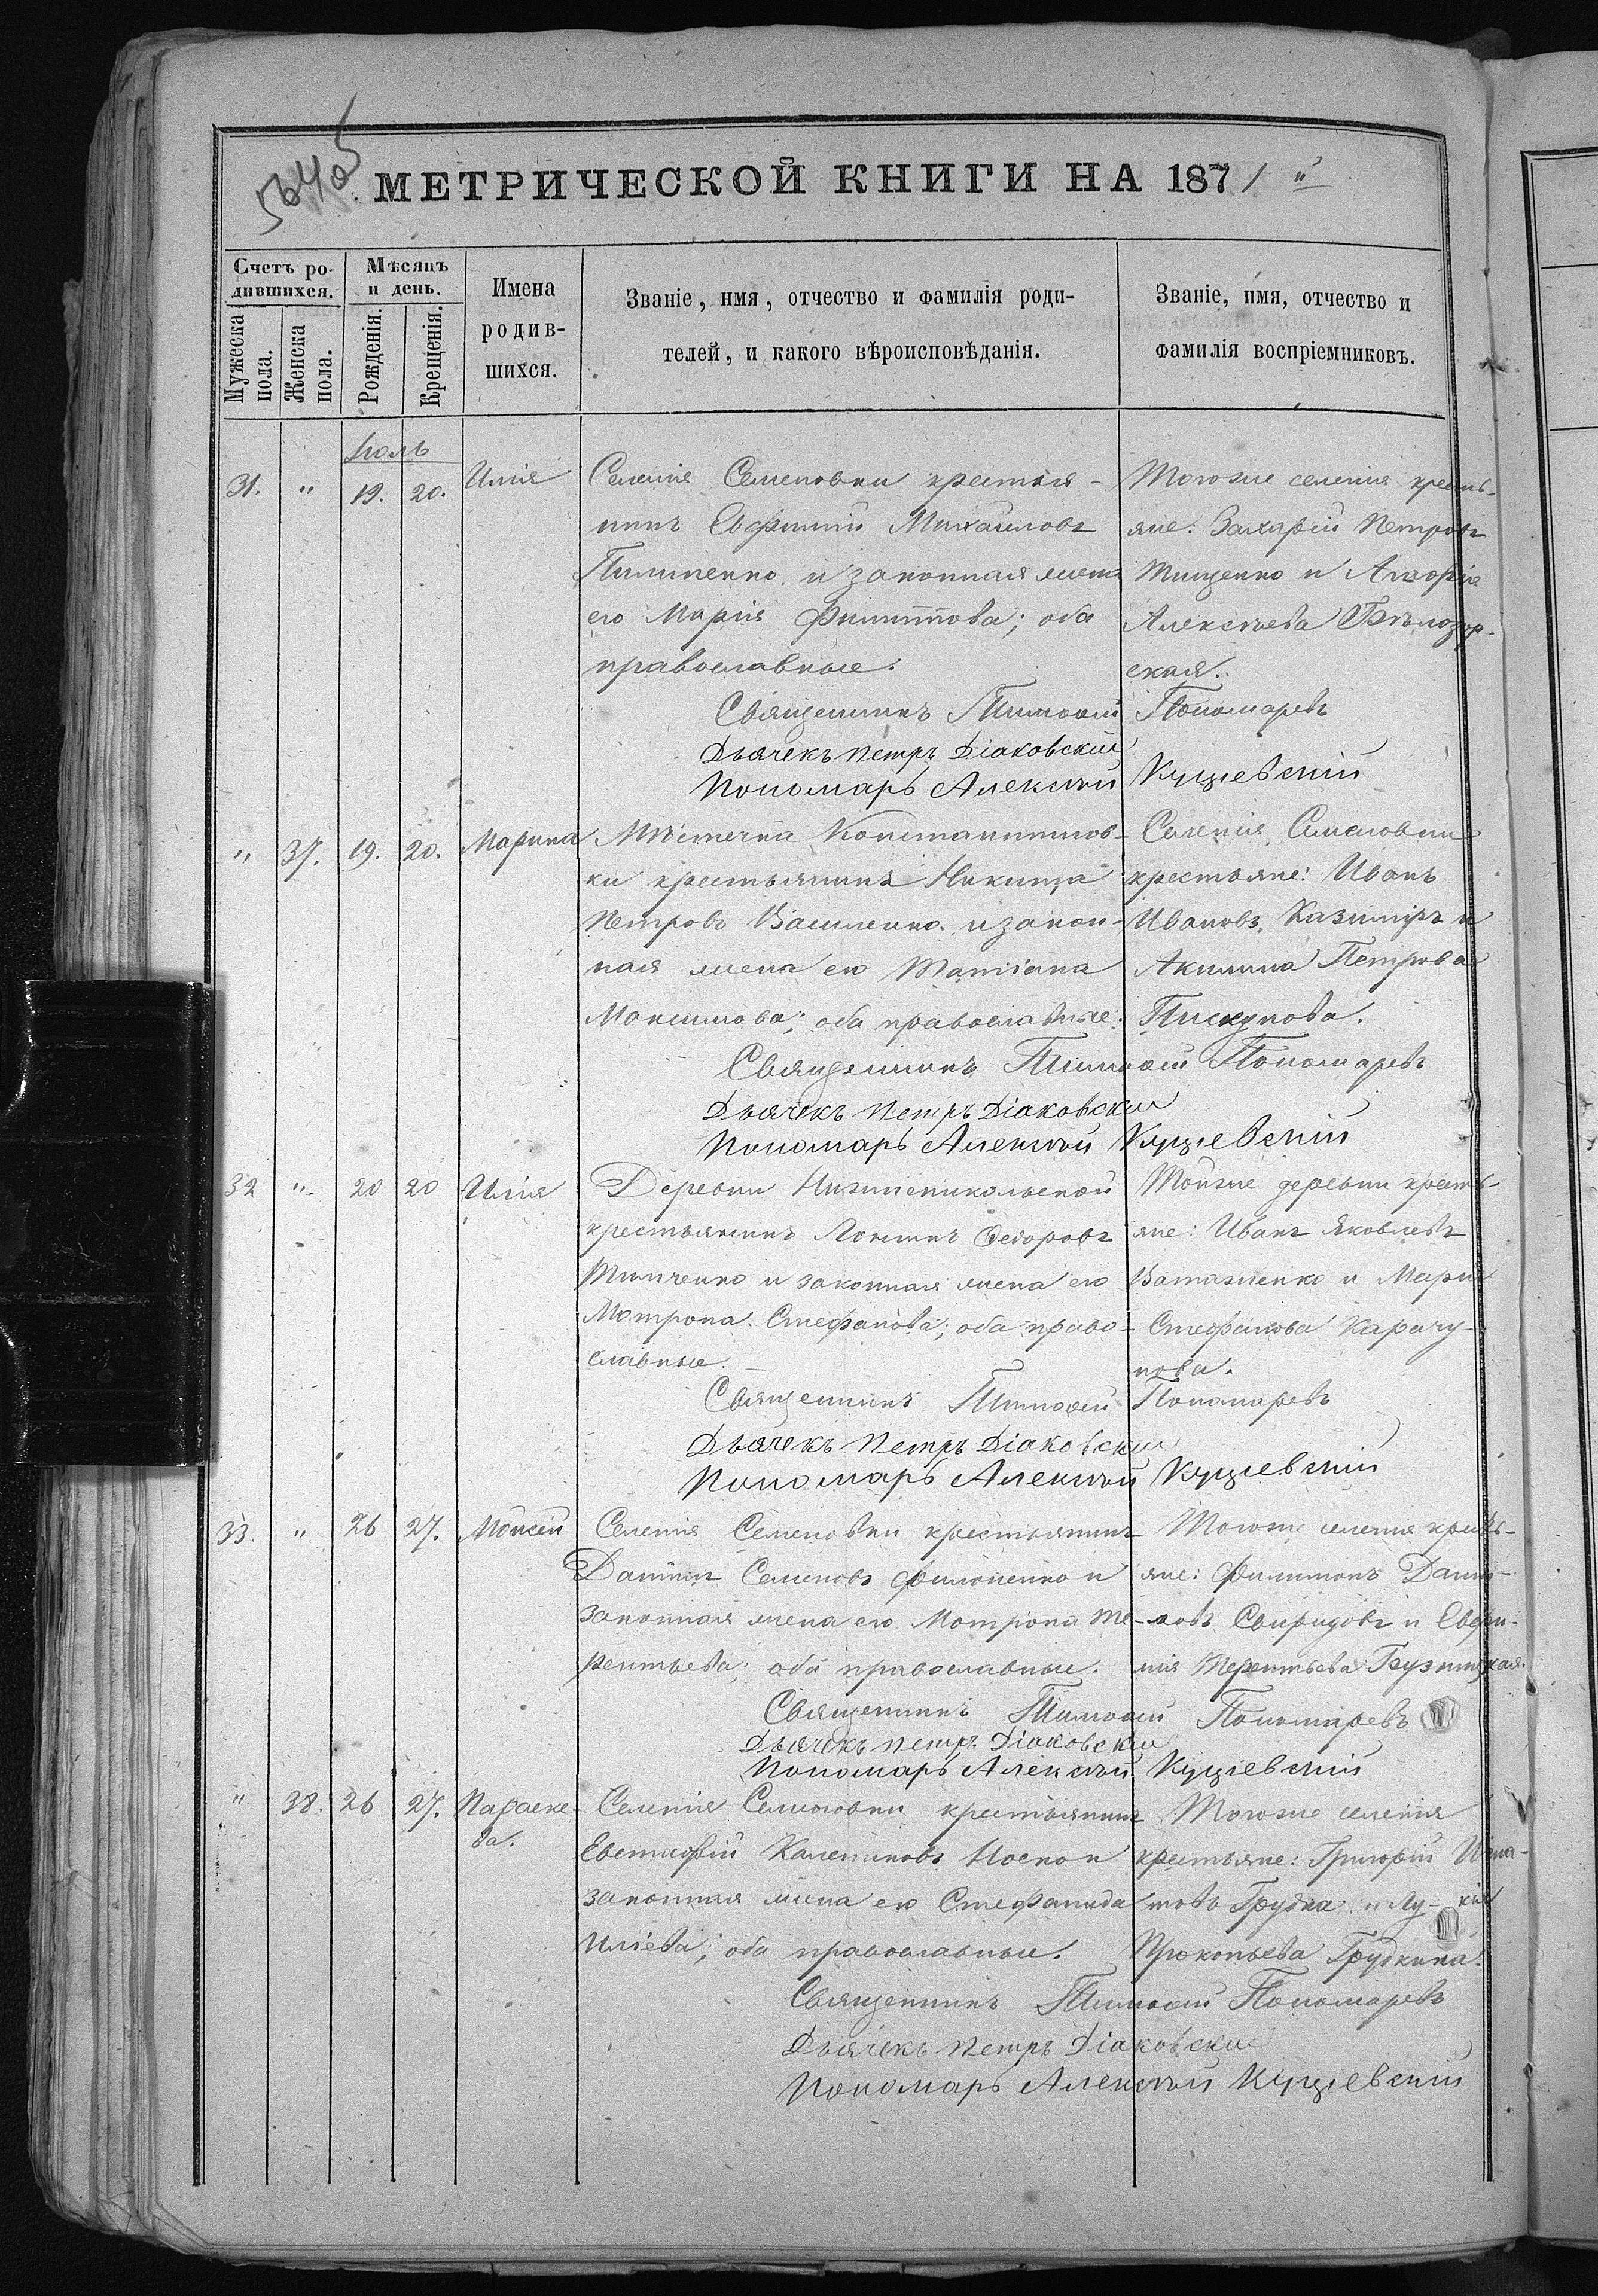 МЕТРИЧЕСКОЙ КНИГИ НА 1871
Счетъ ро-
дившихся.
Мѣсяцъ
и день.
Мужеска пола.
Женска пола.
Рожденія.
Крещенія.
Имена
родив-
шихся.
Званіе, имя, отчество и фамилія роди-
телей, и какого вѣроисповѣданія.
Званіе, имя, отчество и
фамилія воспріемниковъ.
Іюль
31. " 19. 20. Илія
Селенія Семеновки крестья-
нинъ Евфимій Михаиловъ
Пилипенко и законная жена
его Марія Филиппова; оба
православные.
Тогоже селенія кресть-
яне: Захарій Петровъ
Тищенко и
Алексѣева Бѣлозор-
ская.
Священникъ Тимоѳей Пономаревъ
Дьячекъ Петръ Діаковскій
Пономарь Алексѣй Кущевскій
" 37. 19. 20. Марина
Мѣстечка Константинов-
ки крестьянинъ Никита
Петровъ Василенко и закон-
ная жена его Татіана
Максимова; оба православные.
Селенія Семеновки
крестьяне: Иванъ
Ивановъ Казимиръ и
Акилина Петрова
Пискунова.
Священникъ Тимоѳей Пономаревъ
Дьячекъ Петръ Діаковскій
Пономарь Алексѣй Кущевскій
32 " 20 20 Илія
Деревни Нижненикольской
крестьянинъ Логинъ Ѳедоровъ
Тимченко и законная жена его
Мотрона Стефанова; оба право-
славные.
Тойже деревни кресть-
яне: Иванъ Яковлевъ
Ватаженко и Марія
Стефанова Карачу-
нова.
Священникъ Тимоѳей Пономаревъ
Дьячекъ Петръ Діаковскій
Пономарь Алексѣй Кущевскій
33. " 26 27. Моисей
Селенія Семеновки крестьянинъ
Даніилъ Семеновъ Филоненко и
законная жена его Мотрона Те-
рентьева; оба православные.
Тогоже селенія кресть-
яне: Филимонъ Дани-
ловъ Свиридовъ и Евфи-
мія Терентьева
Священникъ Тимоѳей Пономаревъ
Дьячекъ Петръ Діаковскій
Пономарь Алексѣй Кущевскій
" 38. 26 27. Параске-
ва.
Селенія Семеновки крестьянинъ
Евстафій Калениковъ Носко и
законная жена его Стефанида
Иліева; оба православные.
Тогоже селенія
крестьяне: Григорій Игна-
товъ Грудка и Лу-кія
Прокопьева Грудкина.
Священникъ Тимоѳей Пономаревъ
Дьячекъ Петръ Діаковскій
Пономарь Алексѣй Кущевскій